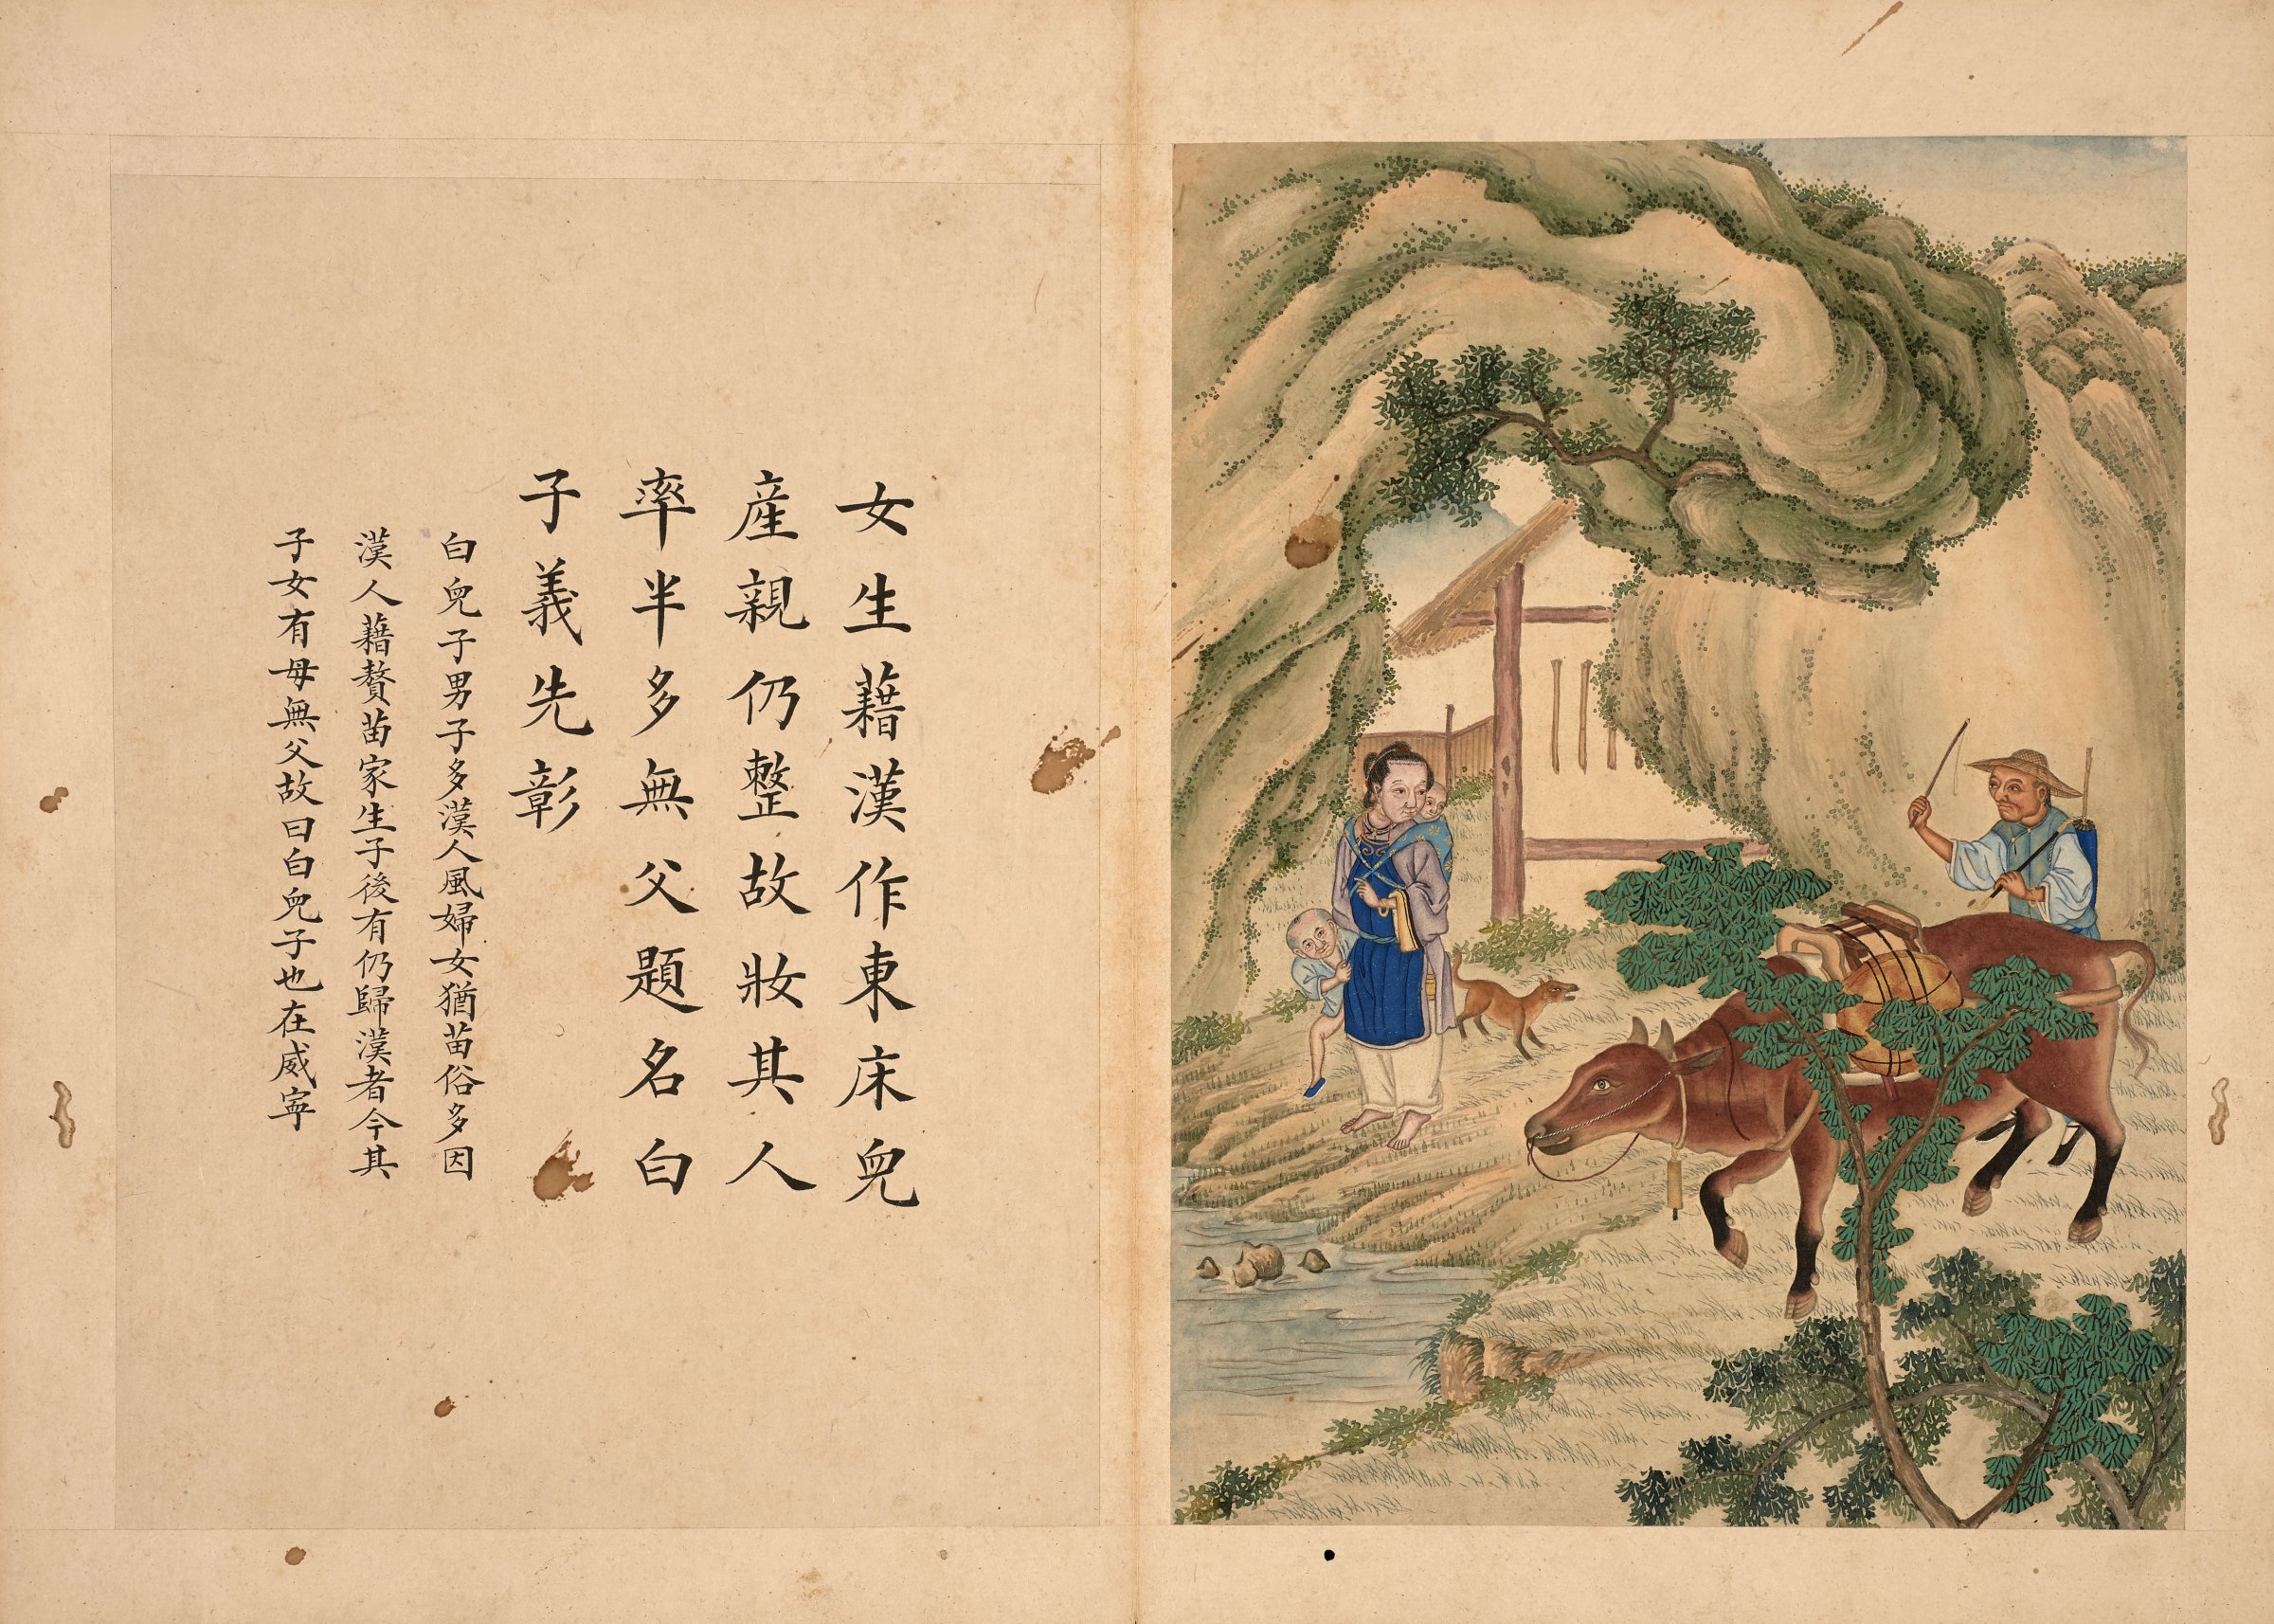 女生藉漢作東床兒
産親仍整故妝其人
率半多無父題名白
子義先彰
白兒子男子多漢人風婦女猶苗俗多因
漢人藉贅苗家生子後有仍歸漢者今其
子女有母無父故曰白兒子也在威寧